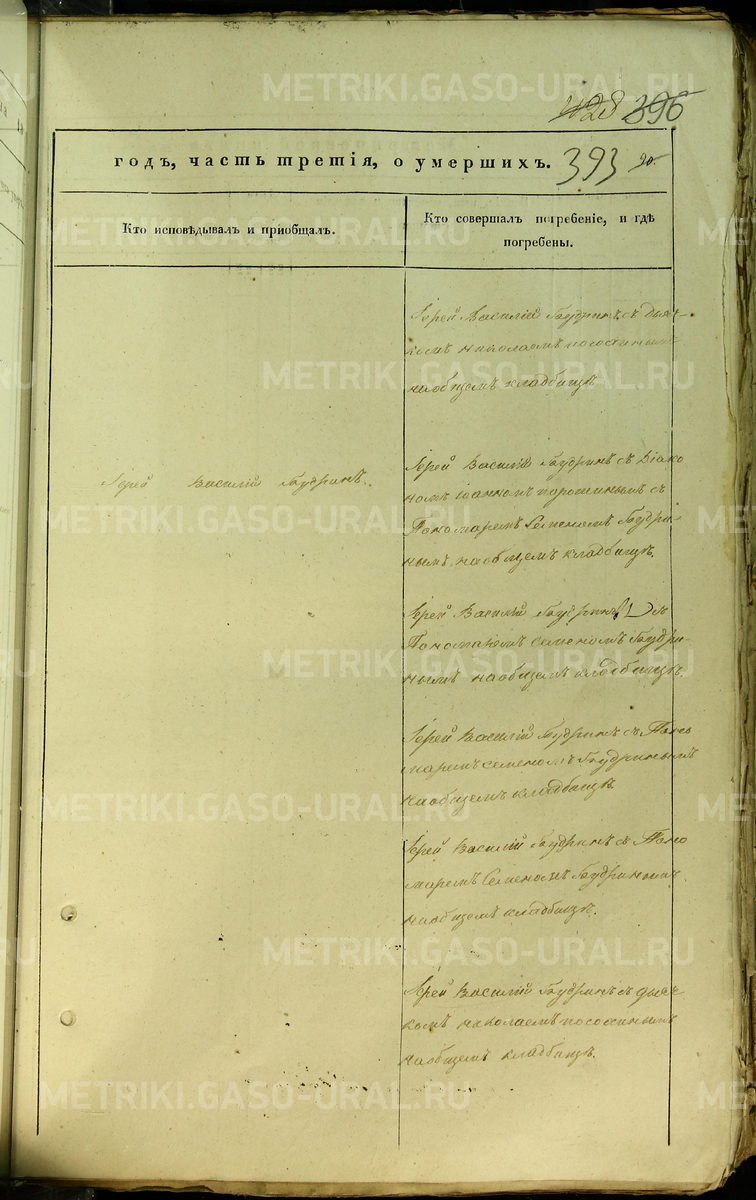 428 396
годъ, часть третія, о умершихъ. 393
Кто исповѣдывалъ и приобщалъ.
Кто совершалъ погребеніе, и гдѣ
погребены.
Іерей Василій Кудринъ съ дьяч-
комъ николаемъ
наобщемъ кладбищѣ
Іерей Василій Кудринъ.
Іерей Василій Кудринъ съ Діако
номъ іоанномъ порошинымъ съ
Пономаремъ Семеномъ Кудри-
нымъ наобщемъ кладбищѣ.
Іерей Василій Кудринъ съ
Пономаремъ Семеномъ Кудри-
нымъ наобщемъ кладбищѣ.
Іерей Василій Кудринъ съ Поно
маремъ семеномъ Кудринымъ
наобщемъ кладбищѣ.
Іерей Василій Кудринъ съ Поно
маремъ Семеномъ Кудринымъ
наобщемъ кладбищѣ.
Іерей Василій Кудринъ съ дьяч-
комъ николаемъ
наобщемъ кладбищѣ.
METRIKI.GASO-URAL.RU